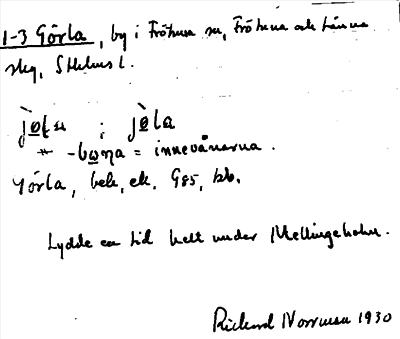 1-3 Görla, by i Frötuna sn, Frötuna och Länna
skg, Sthlms l.
jø̀ɭa ; jø̀la
-bωna = innevånarna.
Görla, bek, ek. G85, kb.
Lydde en tid helt under Mellingeholm.
Rickard Norrman 1930